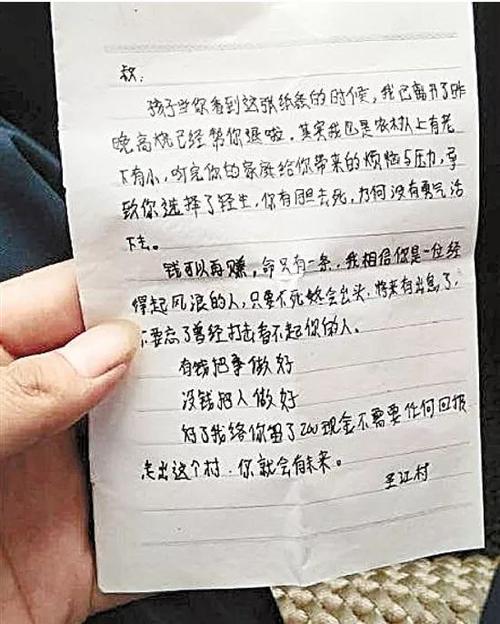 叔：
孩子当你看到这张纸条的时候，我已离开了昨
晚高烧已经帮你退啦，其实我也是农村人上有老
下有小，听完你的家庭给你带来的烦恼与压力，导
致你选择了轻生，你有胆去死，为何没有勇气活
下去。
钱可以再赚，命只有一条，我相信你是一位经
得起风浪的人，只要不死终会出头，将来有出息了，
不要忘了曾经打击看不起你的人。
有钱把事做好
没钱把人做好
对了我给你留了200现金不需要任何回报
走出这个村，你就会有未来。
王江村